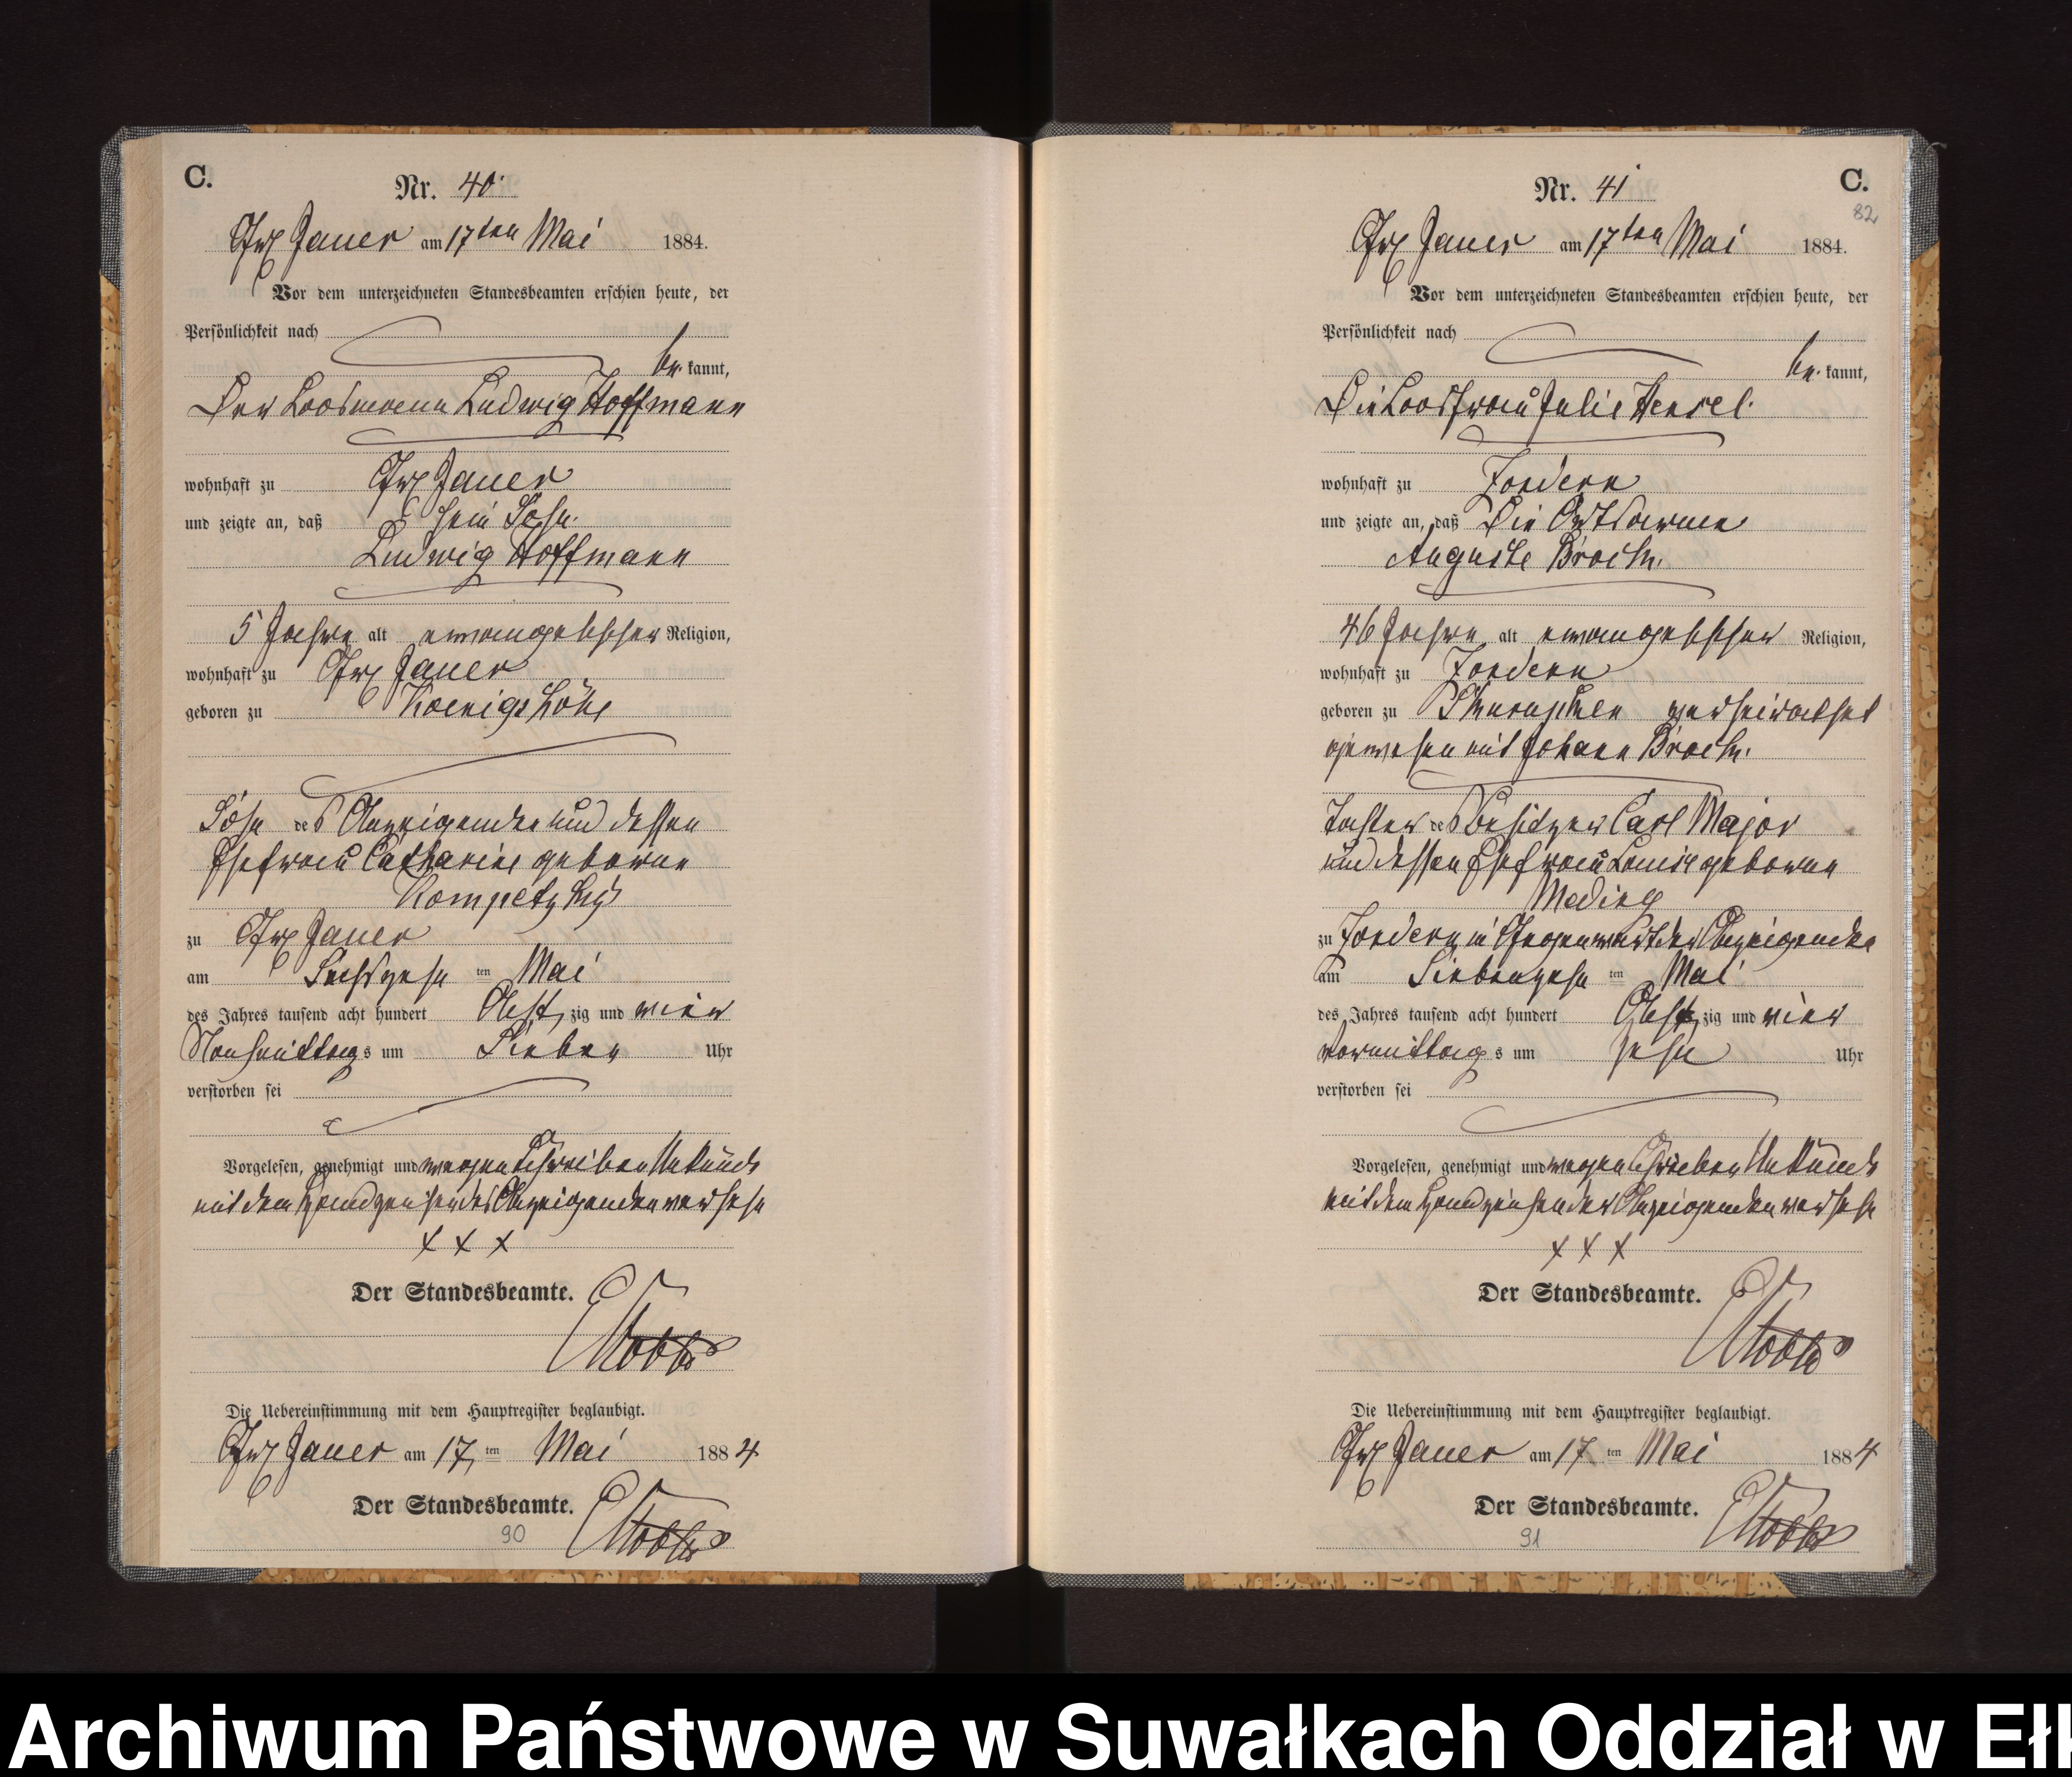 C.
Nr. 40
Gr. Jauer am 17ten Mai 1884.
Vor dem unterzeichneten Standesbeamten erschien heute, der
Persönlichkeit nach
be kannt,
Der Loosmann Ludwig Hoffmann
wohnhaft zu Gr. Jauer
und zeigte an, daß sein Sohn
Ludwig Hoffmann
5 Jahre alt evangelischer Religion,
wohnhaft zu Gr. Jauer
geboren zu Koenigshöhe
Sohn des Anzeigenden und dessen
Ehefrau Catharine geborne
zu Gr. Jauer
am Sechszehn ten Mai
des Jahres tausend acht hundert Acht zig und vier
Nachmittag s um Sieben Uhr
verstorben sei
Vorgelesen, genehmigt und wegen Schreiben Unkunde
mit dem Handzeichen des Anzeigenden versehn
x x x
Der Standesbeamte.
Die Uebereinstimmung mit dem Hauptregister beglaubigt.
Gr. Jauer am 17 ten Mai 1884
Der Standesbeamte.
90
C.
82
Nr. 41
Gr. Jauer am 17ten Mai 1884.
Vor dem unterzeichneten Standesbeamten erschien heute, der
Persönlichkeit nach
be kannt,
Die Loosfrau Julie Hensel
wohnhaft zu Jordern
und zeigte an, daß Die Ortsarme
Auguste Broch
46 Jahre alt evangelischer Religion,
wohnhaft zu Jordern
geboren zu verheirathet
gewesen mit Johann Broch
Tochter des Besitzer Carl Major
und dessen Ehefrau Louise geborne
Meding
zu Jordern in Gegenwart der Anzeigenden
am Siebenzehn ten Mai
des Jahres tausend acht hundert Acht zig und vier
Vormittag s um zehn Uhr
verstorben sei
Vorgelesen, genehmigt und wegen Schreiben Unkunde
mit dem Handzeichen der Anzeigenden versehn
x x x
Der Standesbeamte.
Die Uebereinstimmung mit dem Hauptregister beglaubigt.
Gr. Jauer am 17 ten Mai 1884
Der Standesbeamte.
91
Archiwum Państwowe w Suwałkach Oddział w Ełk